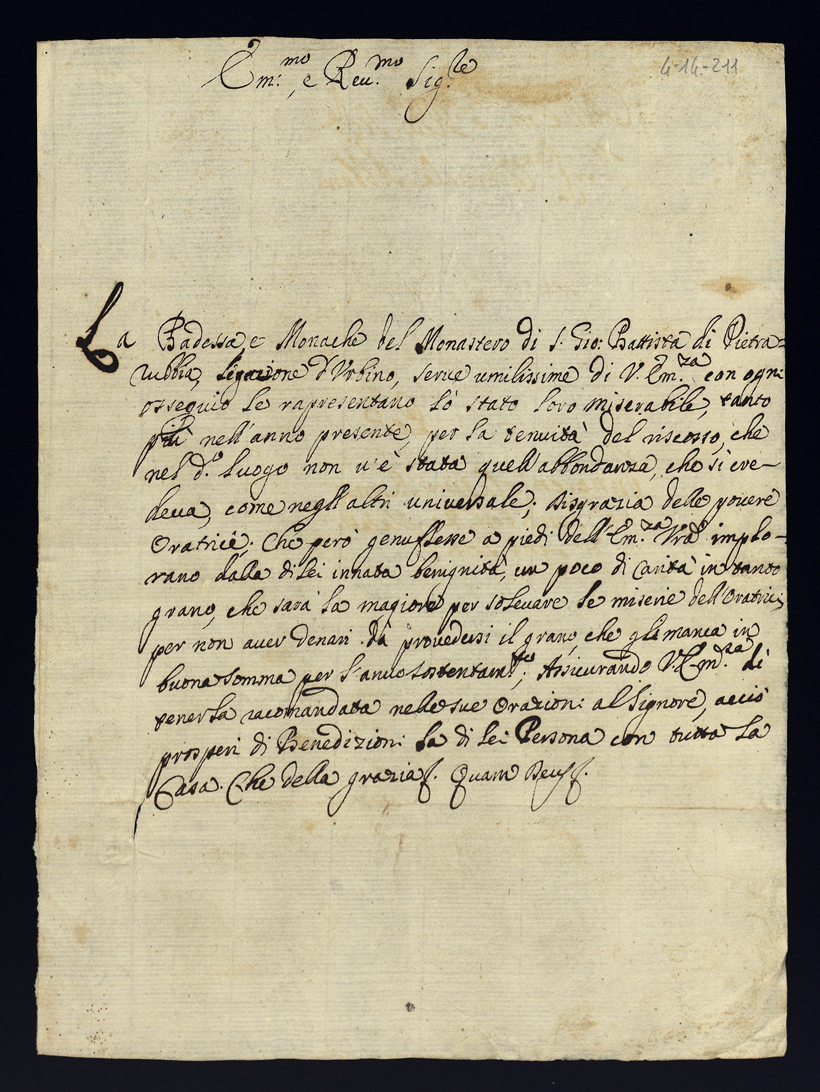 4-14-211
Em.mo e Reu.mo Sig.re
La Badessa, e Monache del Monastero di S. Gio: Battista di Pietra=
rubbia, Legazione d'Urbino, serue umilissime di V. Em.za con ogni
ossequio le rapresentano lo stato loro miserabile, tanto
più nell'anno presente, per la tenuità del riscosso, che
nel d.o luogo non u'è stata quell'abbondanza, che si cre-
deua, come negl'altri uniuersale; disgrazia delle pouere
Oratrici; Che però genuflesse a piedi dell'Em.za Vra implo-
rano dalla di lei innata benignità, un poco di Carità in tanto
grano, che sarà la magiore per soleuare le miserie dell'Oratrici,
per non auer denari da prouedersi il grano, che gli manca in
buona somma per l'annuo sostentam.to; Assicurando V. Em.za di
tenerla racomandata nelle sue Orazioni al Signore, acciò
prosperi di Benedizioni la di lei Persona con tutta la
Casa. Che della grazia &. Quam Deus &.